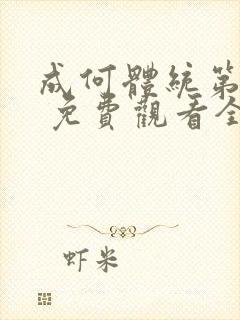 成何體統第
免費觀看全
虾米